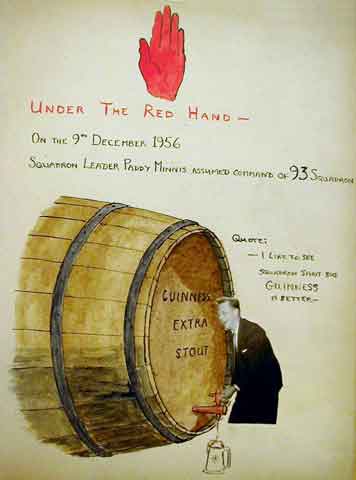 UNDER THE RED HAND —
ON THE 9TH DECEMBER 1956
SQUADRON LEADER PADDY MINNIS ASSUMED COMMAND OF 93 SQUADRON
QUOTE:
— I LIKE TO SEE
SQUADRON SPIRIT BUT
GUINNESS
IS BETTER —
GUINNESS
EXTRA
STOUT